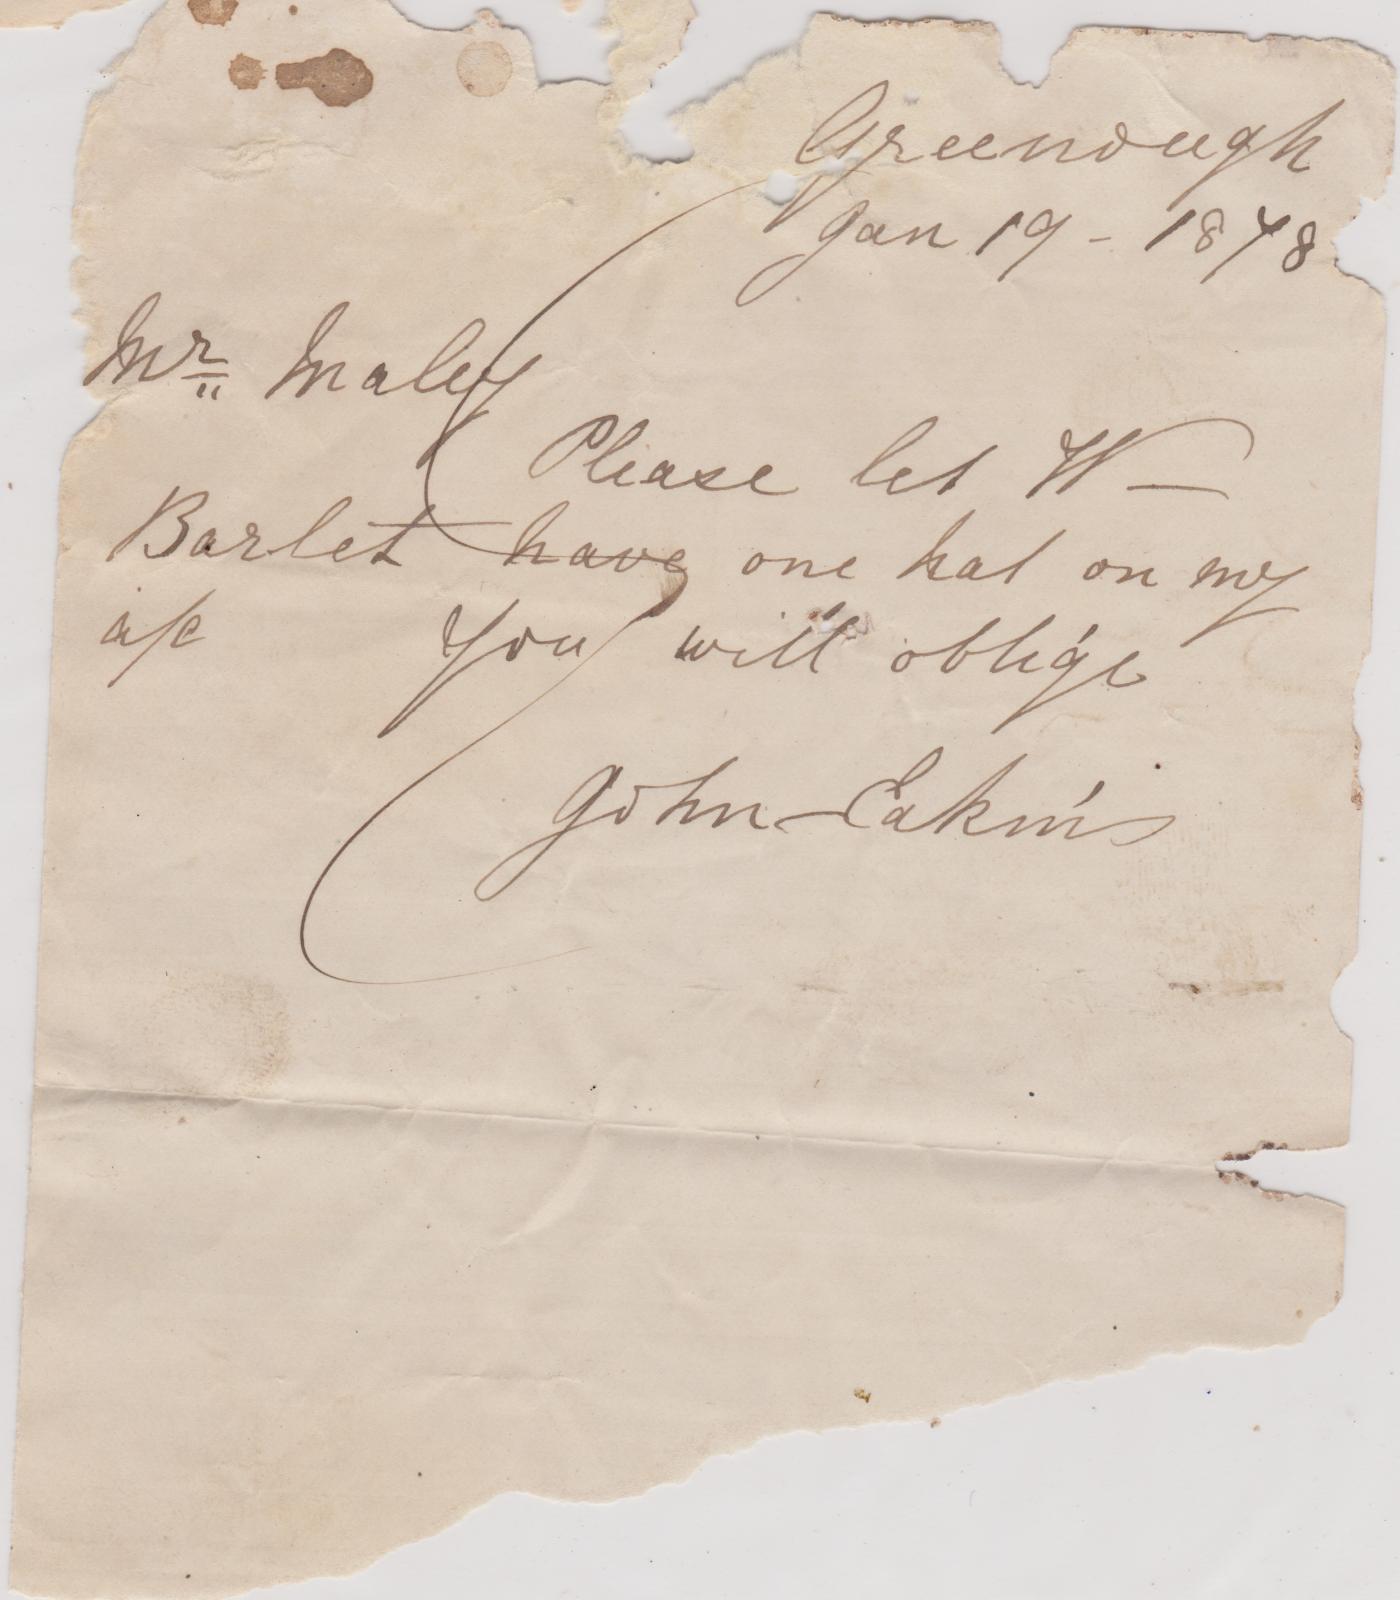 Greenough
Jan 19 - 1878
Mr Maley
Please let W—
Barlet have one hat on my
a/c You will oblige
John Eakins